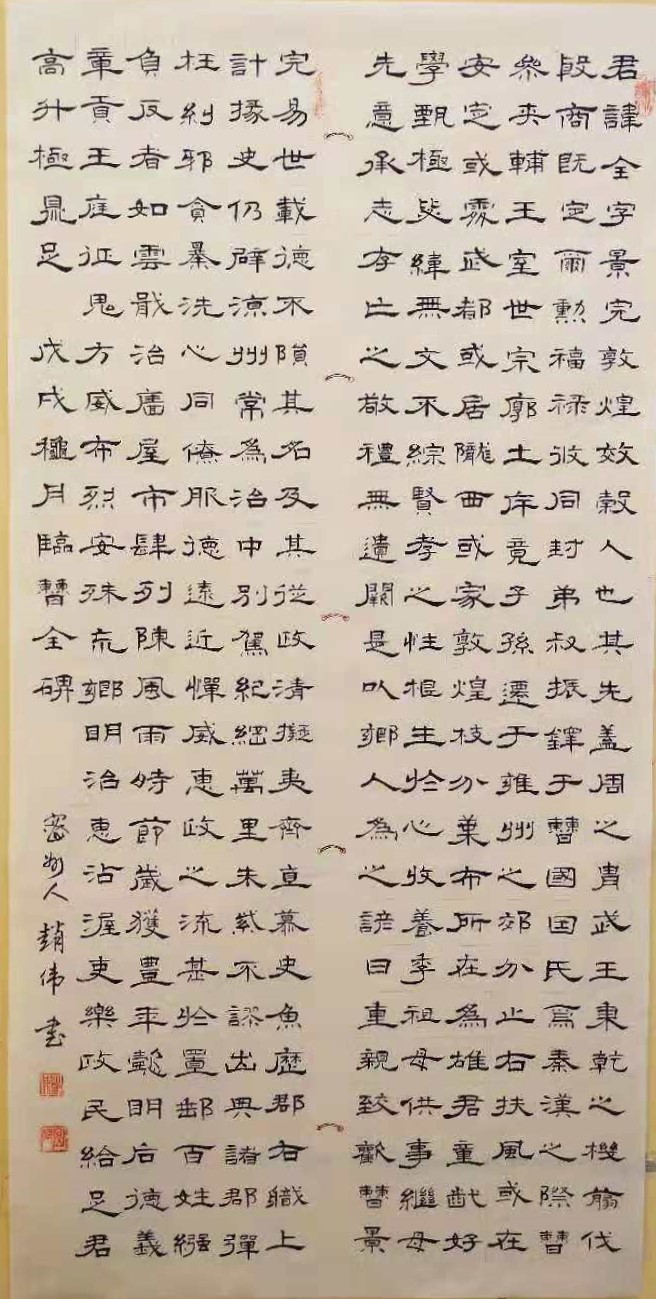 君諱全字景完敦煌效穀人也其先蓋周之胄武王秉乾之機翦伐
殷商既定爾勳福祿攸同封弟叔振鐸于曹國因氏焉秦漢之際曹
參夾輔王室世宗廓土斥竟子孫遷于雍州之郊分止右扶風或在
安定或處武都或居隴西或家敦煌枝分葉布所在為雄君童齔好
學甄極毖緯無文不綜賢孝之性根生於心收養季祖母供事繼母
先意承志存亡之敬禮無遺闕是以鄉人為之諺曰重親致歡曹景
完易世載德不隕其名及其從政清擬夷齊直慕史魚歷郡右職上
計掾史仍辟涼州常為治中別駕紀綱萬里朱紫不謬出典諸郡彈
枉糾邪貪暴洗心同僚服德遠近憚威惠政之流甚於置郵百姓繦
負反者如雲戢治廧屋市肆列陳風雨時節歲獲豊年懿明后德義
章貢王庭征鬼方威布烈安殊荒鄉明治惠沾渥吏樂政民給足君
高升極鼎足 戊戌穐月臨曹全碑
密州人趙偉書